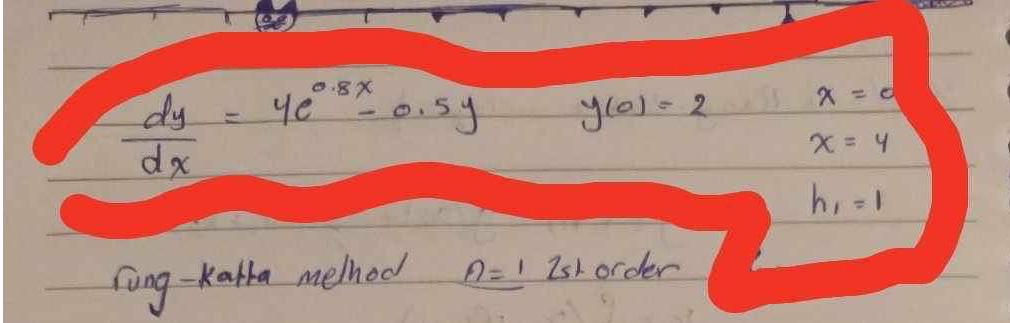 dy/dx = 4e^0.8x - 0.5y    y(0) = 2    x = 0
x = 4
h₁ = 1
rung-katta method    n=1    1st order